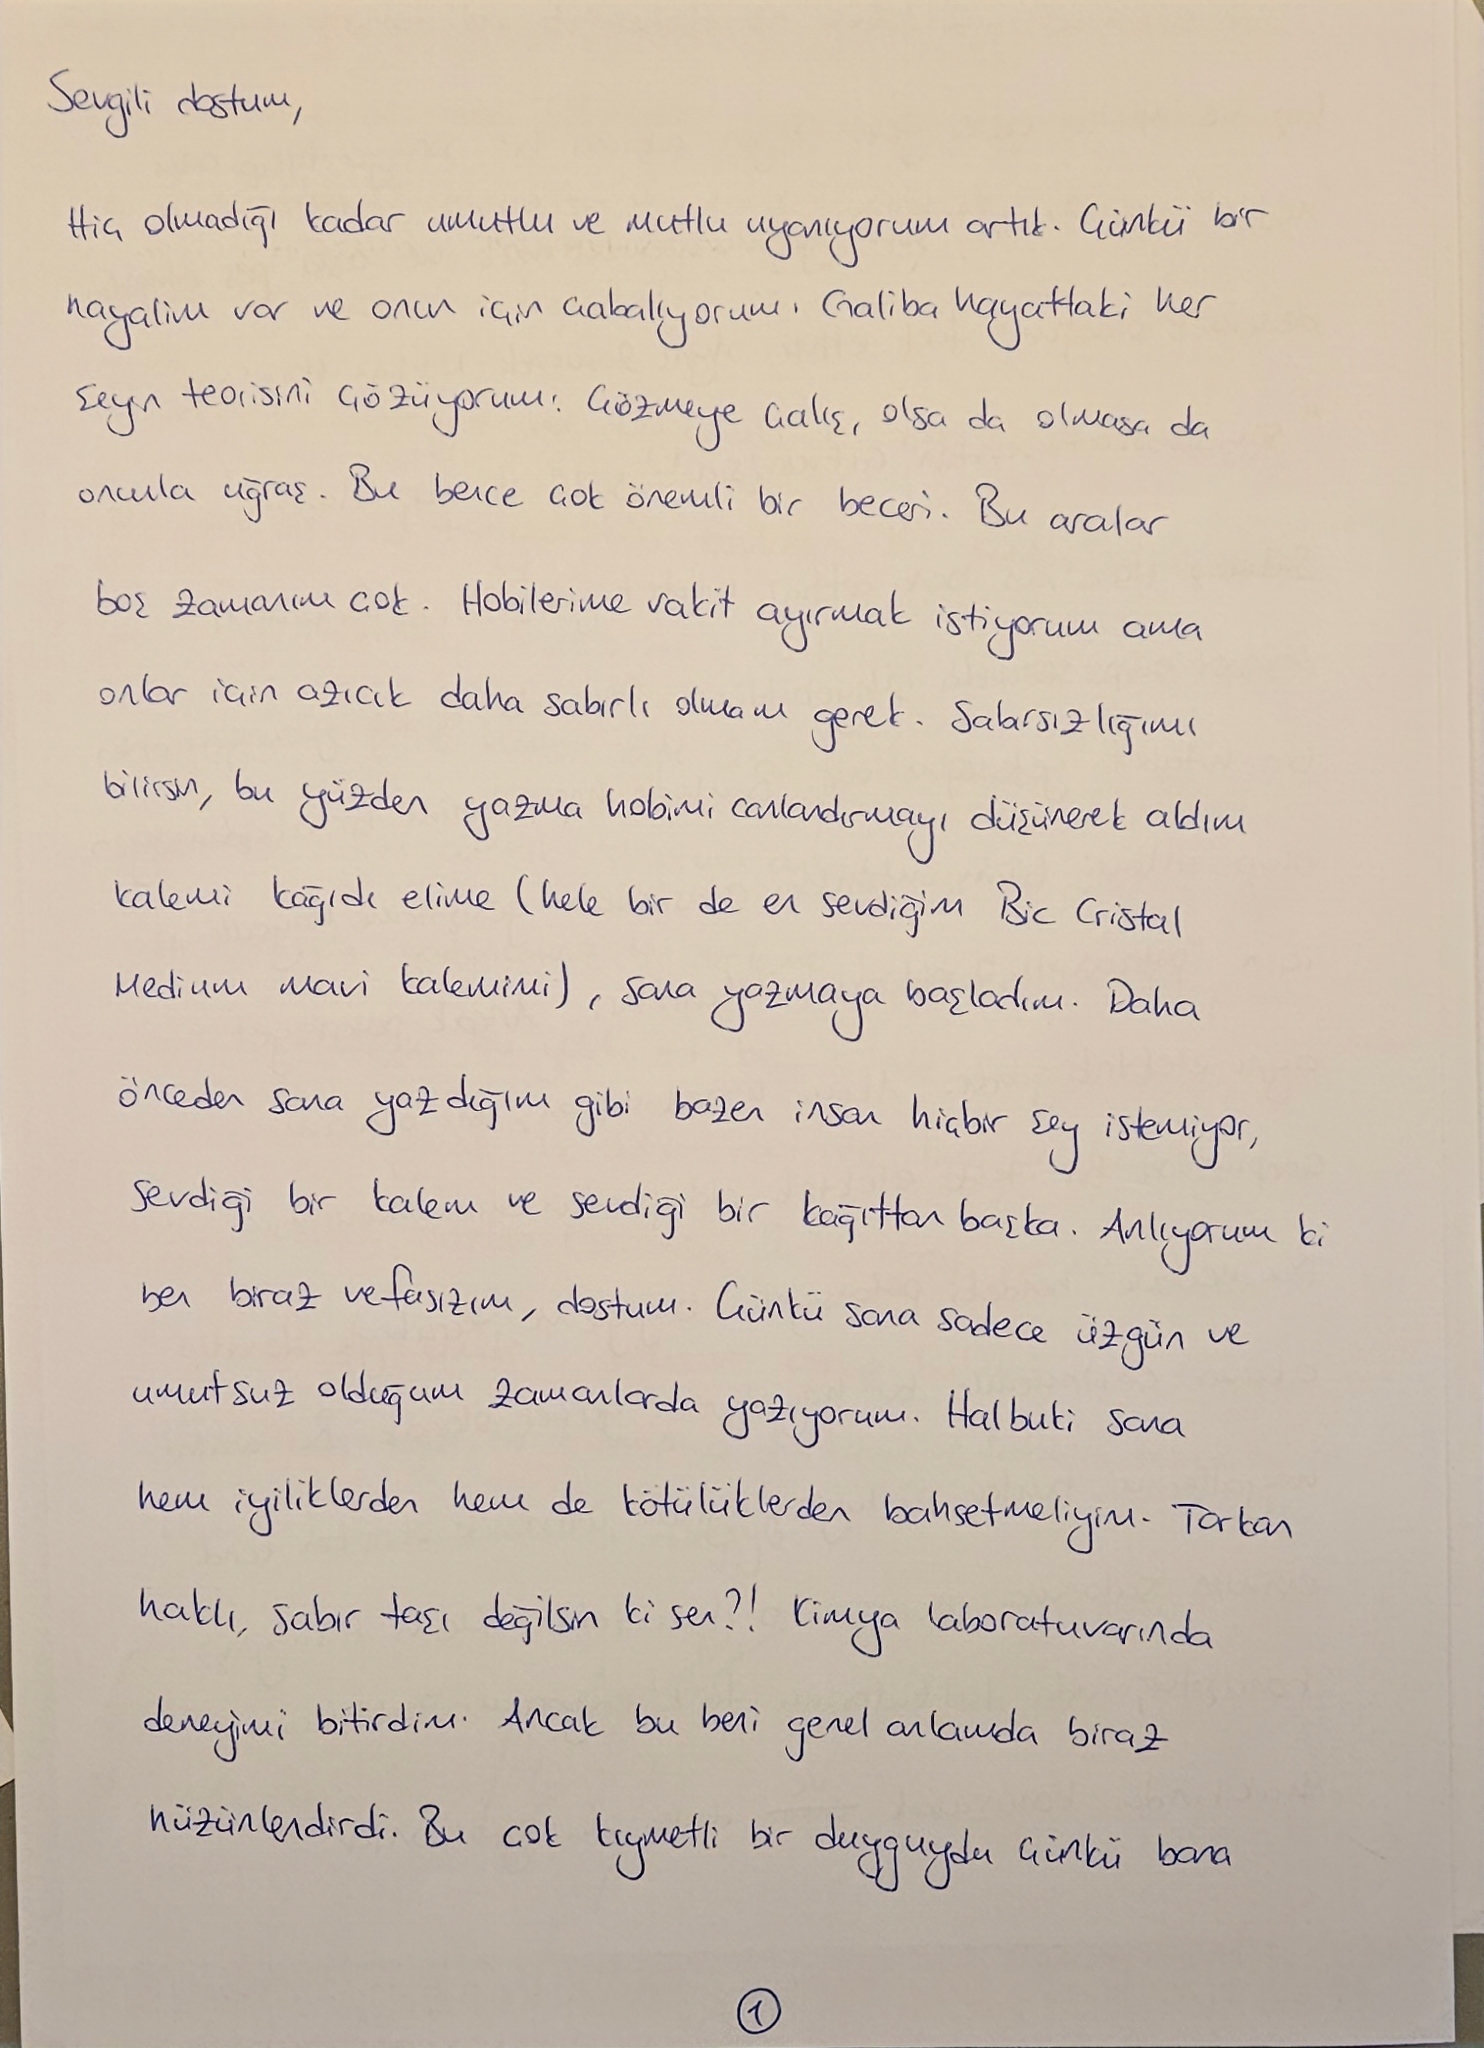 Sevgili dostum,
Hiç olmadığı kadar umutlu ve mutlu uyanıyorum artık. Çünkü bir
hayalim var ve onun için çabalıyorum. Galiba hayattaki her
şeyin teorisini çözüyorum: Çözmeye çalış, olsa da olmasa da
onunla uğraş. Bu bence çok önemli bir beceri. Bu aralar
boş zamanım çok. Hobilerime vakit ayırmak istiyorum ama
onlar için azıcık daha sabırlı olmam gerek. Sabırsızlığımı
bilirsin, bu yüzden yazma hobimi canlandırmayı düşünerek aldım
kalemi kağıdı elime (hele bir de en sevdiğim Bic Cristal
Medium mavi kalemimi), sana yazmaya başladım. Daha
önceden sana yazdığım gibi bazen insan hiçbir şey istemiyor,
sevdiği bir kalem ve sevdiği bir kağıttan başka. Anlıyorum ki
ben biraz vefasızım, dostum. Çünkü sana sadece üzgün ve
umutsuz olduğum zamanlarda yazıyorum. Halbuki sana
hem iyiliklerden hem de kötülüklerden bahsetmeliyim. Tarkan
haklı, sabır taşı değilsin ki sen?! Kimya laboratuvarında
deneyimi bitirdim. Ancak bu beni genel anlamda biraz
hüzünlendirdi. Bu çok kıymetli bir duyguydu çünkü bana
1